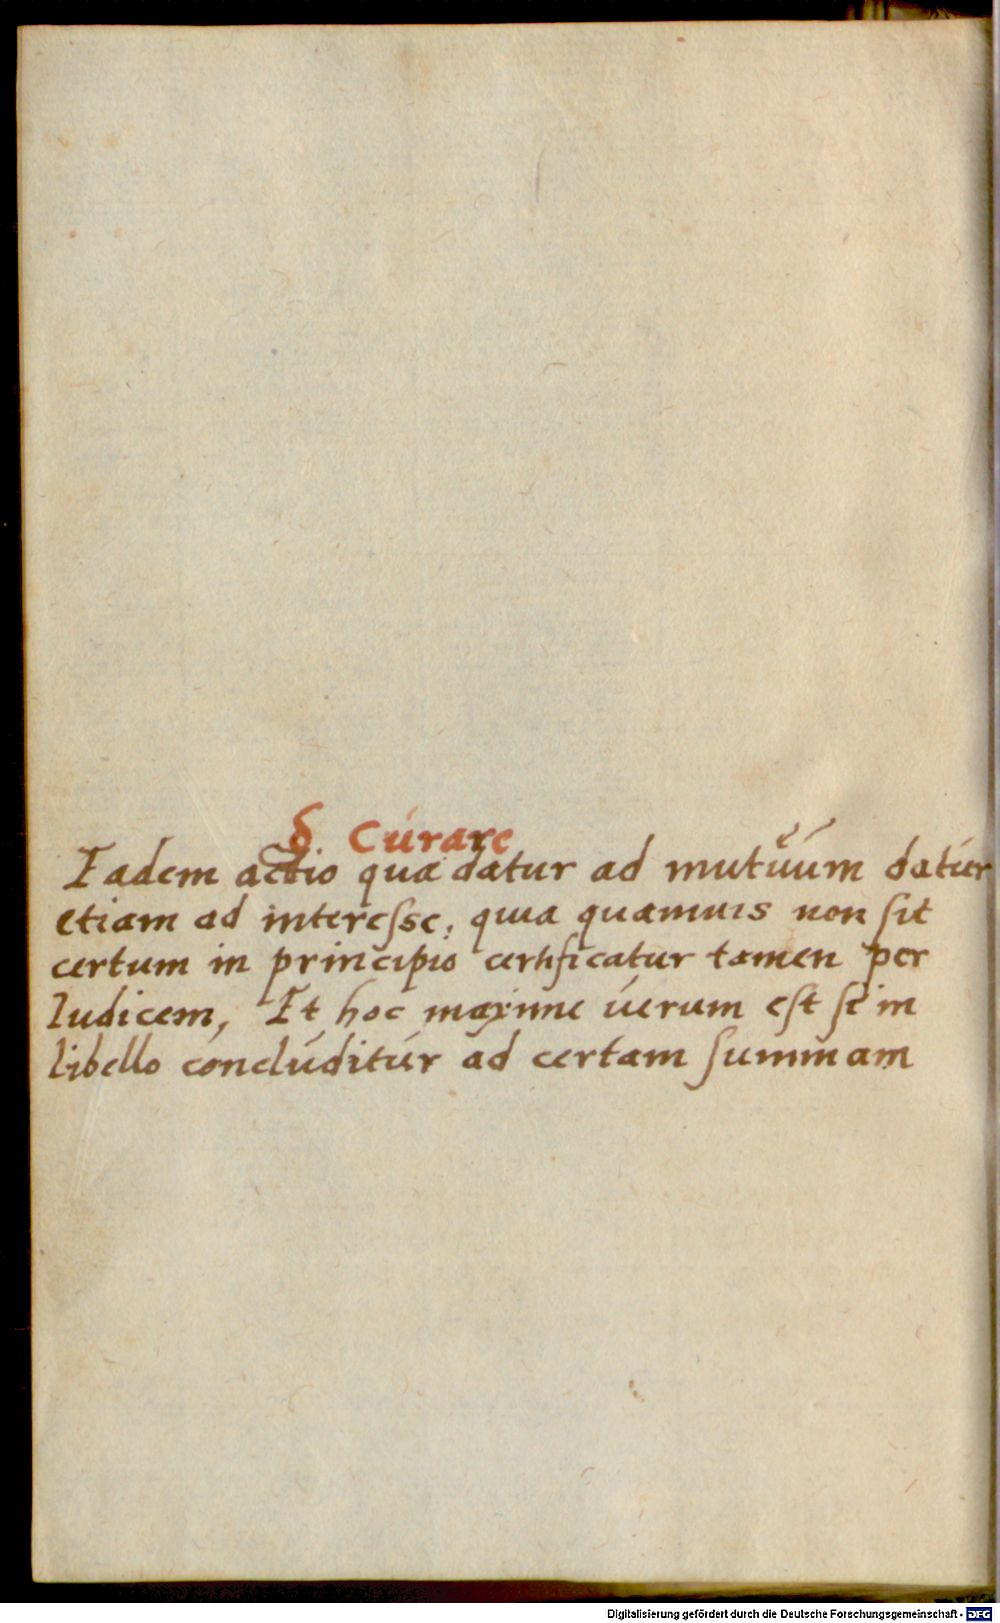 §. Curare
Eadem actio qua datur ad mutuum datur
etiam ad interesse, quia quamuis non sit
certum in principio certificatur tamen per
Iudicem, Et hoc maxime uerum est si in
libello concluditur ad certam summam
Digitalisierung gefördert durch die Deutsche Forschungsgemeinschaft - DFG